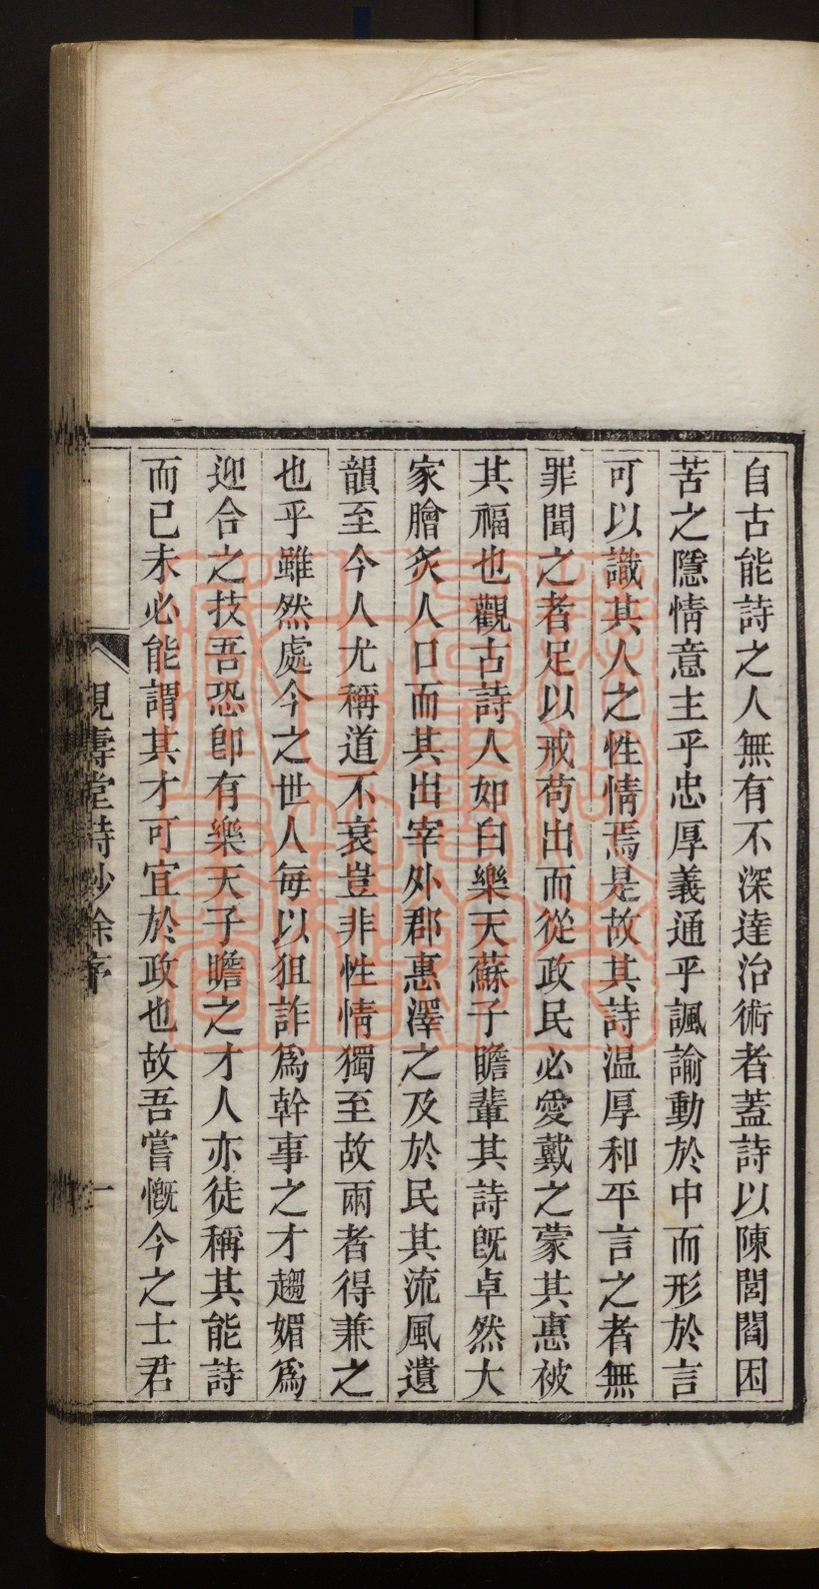 自古能詩之人無有不深達治術者蓋詩以陳閭閻困
苦之隱情意主乎忠厚義通乎諷諭動於中而形於言
可以識其人之性情焉是故其詩温厚和平言之者無
罪聞之者足以戒苟出而從政民必愛戴之蒙其惠被
其福也觀古詩人如白樂天蘇子瞻輩其詩旣卓然大
家膾炙人口而其出宰外郡惠澤之及於民其流風遺
韻至今人尤稱道不衰豈非性情獨至故兩者得兼之
也乎雖然處今之世人每以狙詐爲幹事之才趨媚爲
迎合之技吾恐卽有樂天子瞻之才人亦徒稱其能詩
而已未必能謂其才可宜於政也故吾嘗慨今之士君
壽堂詩鈔 徐序 一